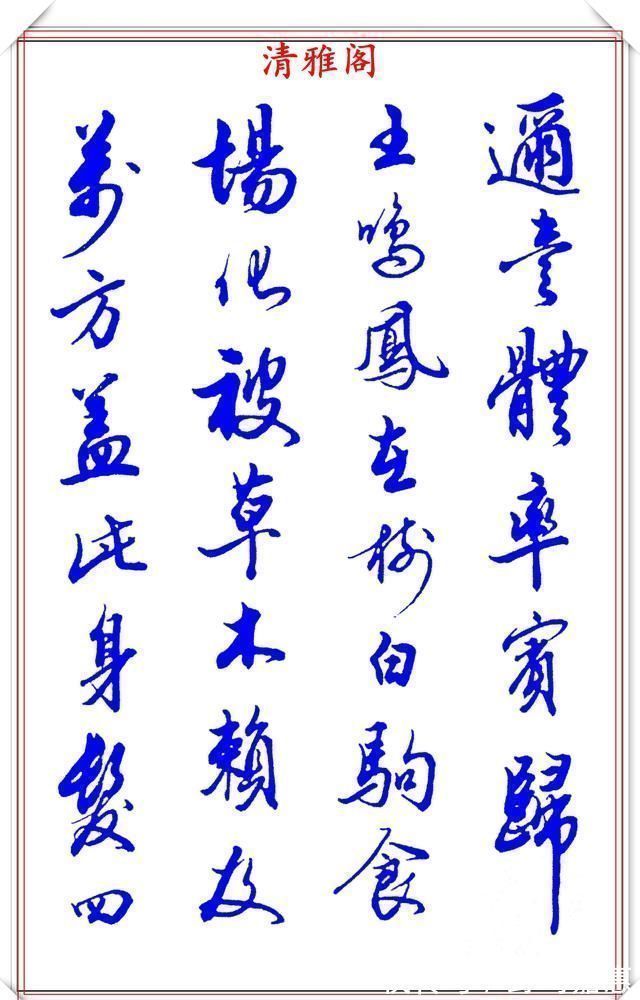 清雅阁
邇壹體率賓歸
王鳴鳳在樹白駒食
場化被草木賴及
萬方蓋此身髮四